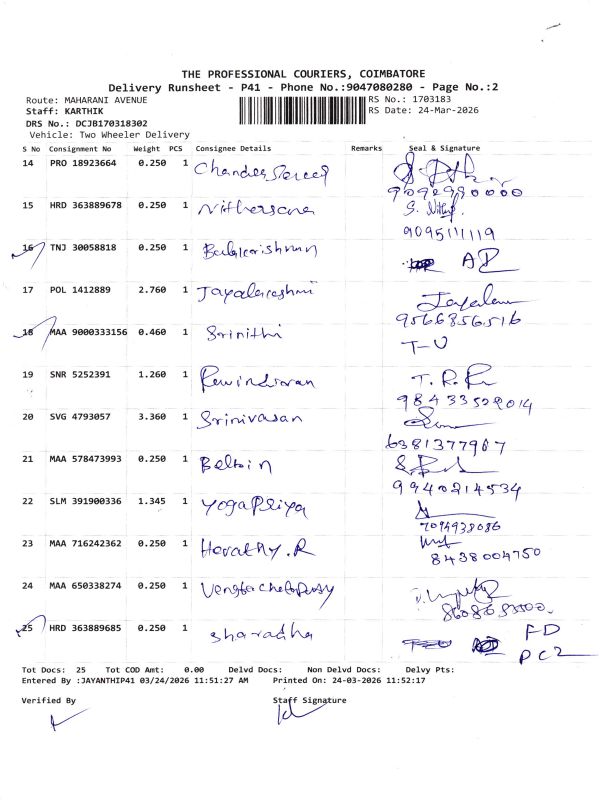 THE PROFESSIONAL COURIERS, COIMBATORE
Delivery Runsheet - P41 - Phone No.:9047080280 - Page No.:2
Route: MAHARANI AVENUE
RS No.: 1703183
Staff: KARTHIK
RS Date: 24-Mar-2026
DRS No.: DCJB170318302
Vehicle: Two Wheeler Delivery
S No Consignment No Weight PCS Consignee Details Remarks Seal & Signature
14 PRO 18923664 0.250 1
9092990000
15 HRD 363889678 0.250 1 Nithersana S. Nithy
9095111119
16 TNJ 30058818 0.250 1 Balakrishnan AP
17 POL 1412889 2.760 1 Jayalakshmi Jayalam
9566856516
18 MAA 9000333156 0.460 1 Srinithi T-U
19 SNR 5252391 1.260 1 T. R. R
9843352014
20 SVG 4793057 3.360 1 Srinivasan
6381377907
21 MAA 578473993 0.250 1 Belbin
9940214534
22 SLM 391900336 1.345 1 Yogapriya
7094938086
23 MAA 716242362 0.250 1 Herathy.R
8438004750
24 MAA 650338274 0.250 1
25 HRD 363889685 0.250 1 Sharadha FD
PC2
Tot Docs: 25 Tot COD Amt: 0.00 Delvd Docs: Non Delvd Docs: Delvy Pts:
Entered By :JAYANTHIP41 03/24/2026 11:51:27 AM Printed On: 24-03-2026 11:52:17
Verified By Staff Signature